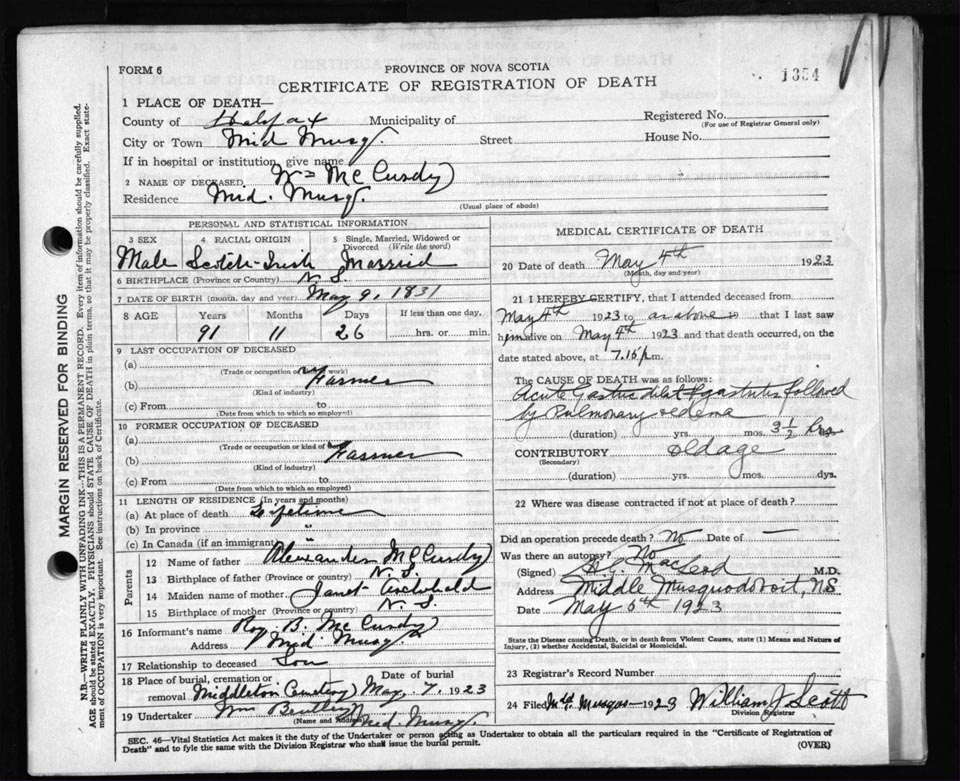 FORM 6
PROVINCE OF NOVA SCOTIA
CERTIFICATE OF REGISTRATION OF DEATH
1354
1 PLACE OF DEATH—
County of Halifax Municipality of
Registered No.
(For use of Registrar General only)
City or Town Mid Musq. Street House No.
If in hospital or institution, give name
2 NAME OF DECEASED Wm McCurdy
Residence Mid. Musq.
(Usual place of abode)
PERSONAL AND STATISTICAL INFORMATION
3 SEX 4 RACIAL ORIGIN 5 Single, Married, Widowed or Divorced (Write the word)
Male Scotch-Irish Married
6 BIRTHPLACE (Province or Country) N. S.
7 DATE OF BIRTH (month, day and year) May 9, 1831
8 AGE Years Months Days If less than one day,
91 11 26 hrs. or min.
9 LAST OCCUPATION OF DECEASED
(a)
(Trade or occupation or kind of work)
(b) Farmer
(Kind of industry)
(c) From to
(Date from which to which so employed)
10 FORMER OCCUPATION OF DECEASED
(a)
(Trade or occupation or kind of work)
(b) Farmer
(Kind of industry)
(c) From to
(Date from which so employed)
11 LENGTH OF RESIDENCE (In years and months)
(a) At place of death Lifetime
(b) In province "
(c) In Canada (if an immigrant) "
Parents
12 Name of father Alexander McCurdy
13 Birthplace of father (Province or country) N. S.
14 Maiden name of mother Janet Archibald
15 Birthplace of mother (Province or country) N. S.
16 Informant's name Roy B. McCurdy
Address Mid Musq.
17 Relationship to deceased Son
18 Place of burial, cremation or removal Middleton Cemetery Date of burial May, 7, 1923
19 Undertaker Wm Bentley Mid. Musq
(Name and Address)
MEDICAL CERTIFICATE OF DEATH
20 Date of death May 4th 1923
(Month, day and year)
21 I HEREBY CERTIFY, that I attended deceased from
May 4th 1923 to as above 19 that I last saw
him alive on May 4th 1923 and that death occurred, on the
date stated above, at 7.15 p.m.
The CAUSE OF DEATH was as follows:
Acute Gastric gastritis followed
by Pulmonary oedema
(duration) yrs. mos. 3½ hrs
CONTRIBUTORY Old age
(Secondary)
(duration) yrs. mos. dys.
22 Where was disease contracted if not at place of death?
Did an operation precede death? No Date of —
Was there an autopsy? No
(Signed) MacLeod M.D.
Address Middle Musquodoboit, NS
Date May 5th 1923
State the Disease causing Death, or in death from Violent Causes, state (1) Means and Nature of
Injury, (2) whether Accidental, Suicidal or Homicidal.
23 Registrar's Record Number
24 Filed 1923 William J Scott
Division Registrar
SEC. 46—Vital Statistics Act makes it the duty of the Undertaker or person acting as Undertaker to obtain all the particulars required in the "Certificate of Registration of
Death" and to fyle the same with the Division Registrar who shall issue the burial permit.
(OVER)
MARGIN RESERVED FOR BINDING
N.B.—WRITE PLAINLY WITH UNFADING INK—THIS IS A PERMANENT RECORD. Every item of information should be carefully supplied.
AGE should be stated EXACTLY. PHYSICIANS should STATE CAUSE OF DEATH in plain terms, so that it may be properly classified. Exact state-
ment of OCCUPATION is very important. See instructions on back of Certificate.